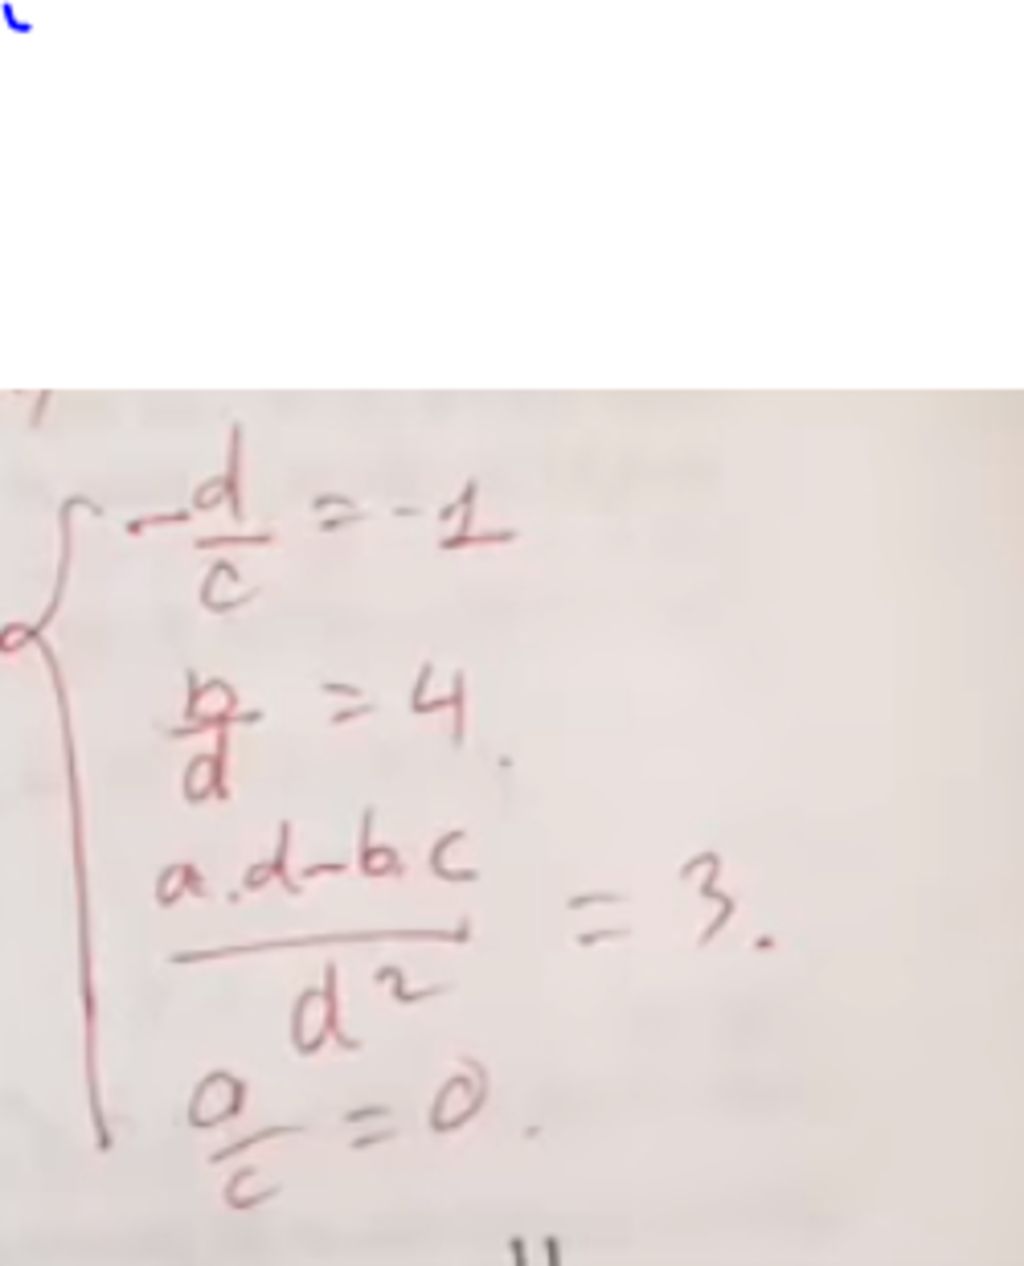 -d/c = -1
b/d = 4.
a.d-b.c/d² = 3.
a/c = 0.